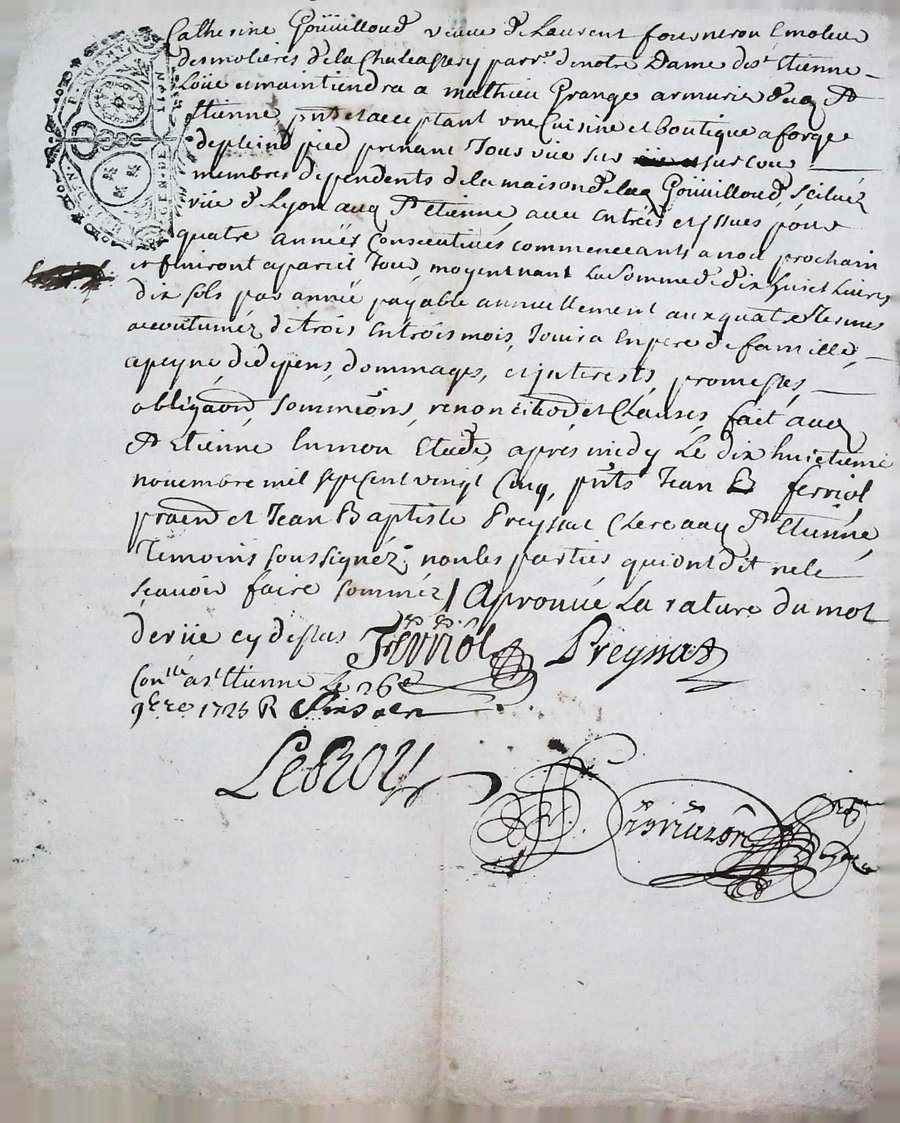 Catherine Goüilloud veuve de Laurent fourneron Emoleur
des molieres de la Chaleassery parr.e de notre Dame de st. Etienne
Loüe et maintiendra a mathieu Grange armurier dud. St
Etienne pnt et acceptant vne Cuisine et boutique a forge
de plein pied prenant Jour sur cour
membres dependents de la maison de lad Goüilloud, scituéz
rüe de Lyon aud St etienne, avec entréés et issues pour
quatre annéés Consecutives commenceants a noel prochain
et finiront a pareil Jour, moyennant La Somme de dix huict Livres
dix sols par année payable annuellement aux quatre termes
accoutuméz de trois en trois mois, Jouira En pere de famille,
a peyne de depens, dommages, et jnterests, promesses
obligaons, sommions, renonciaons et Clauses, fait aud
St Etienne En mon Etude, apres midy Le dix huictieme
novembre mil sept Cent vingt Cinq, pnts Jean B ferriol
praen et Jean Baptiste Preynat Clerc aud St Etienne,
Temoins soussignéz, non les parties qui ont dit ne le
sçavoir faire sommèz / Aprouvé La rature du mot
de rüe cy dessus Ferriol Preynat
Con.lle a st. Etienne Le 26e
9bre 1725 R
LeROY